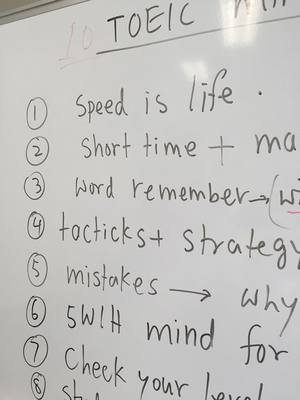 10 TOEIC
① Speed is life.
② Short time +
③ word remember→
④ tacticks+ strategy
⑤ mistakes → why
⑥ 5W1H mind for
⑦ Check your level
⑧